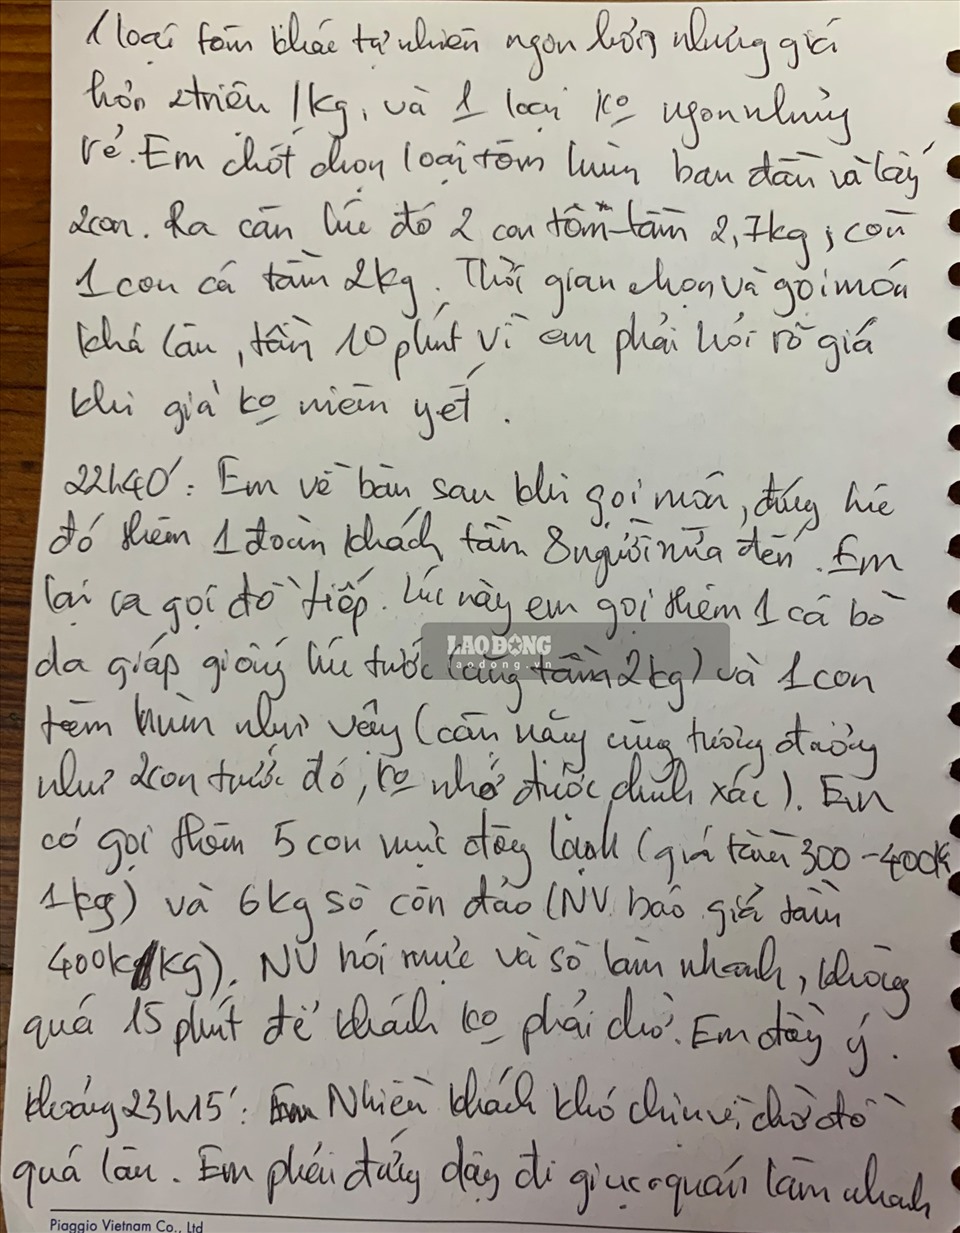 1 loại tôm khác tự nhiên ngon hơn nhưng giá
hơn 2triệu /1kg, và 1 loại ko ngon nhưng
rẻ. Em chốt chọn loại tôm hùm ban đầu và lấy
2con. Ra cân lúc đó 2 con tôm tầm 2,7kg, còn
1 con cá tầm 2kg. Thời gian chọn và gọi món
khá lâu, tầm 10 phút vì em phải hỏi rõ giá
khi giá ko niêm yết.
22h40': Em về bàn sau khi gọi món, đúng lúc
đó thêm 1 đoàn khách tầm 8 người nữa đến. Em
lại ra gọi đồ tiếp. Lúc này em gọi thêm 1 cá bò
LAO ĐỘNG
laodong.vn
da giáp giống lúc trước (cũng tầm 2kg) và 1 con
tôm hùm như vậy (cân nặng cũng tương đương
như 2con trước đó, ko nhớ được chính xác). Em
có gọi thêm 5 con mực đông lạnh (giá tầm 300-400k
1kg) và 6kg sò côn đảo (NV báo giá tầm
400k/KG). NV nói mực và sò làm nhanh, không
quá 15 phút để khách ko phải chờ. Em đồng ý.
Khoảng 23h15': Nhiều khách khó chịu vì chờ đồ
quá lâu. Em phải đứng dậy đi giục quán làm nhanh
Piaggio Vietnam Co., Ltd